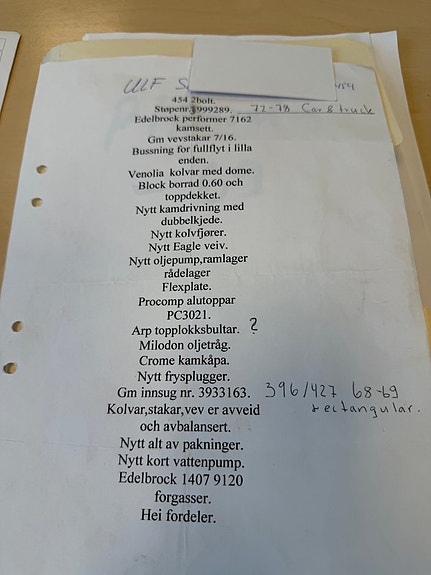 Ulf S 454
454 2bolt.
Støpenr.3999289. 72-78 Car & truck
Edelbrock performer 7162
kamsett.
Gm vevstakar 7/16.
Bussning for fullflyt i lilla
enden.
Venolia kolvar med dome.
Block borrad 0.60 och
toppdekket.
Nytt kamdrivning med
dubbelkjede.
Nytt kolvfjører.
Nytt Eagle veiv.
Nytt oljepump,ramlager
rådelager
Flexplate.
Procomp alutoppar
PC3021.
Arp topplokksbultar. ?
Milodon oljetråg.
Crome kamkåpa.
Nytt frysplugger.
Gm innsug nr. 3933163. 396/427 68-69
Kolvar,stakar,vev er avveid rectangular.
och avbalansert.
Nytt alt av pakninger.
Nytt kort vattenpump.
Edelbrock 1407 9120
forgasser.
Hei fordeler.